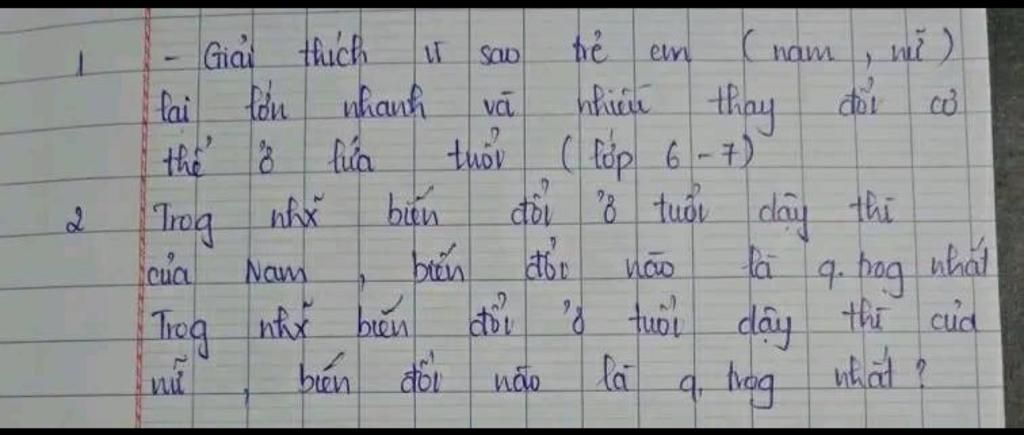 1 - Giải thích vì sao trẻ em (nam, nữ)
lại lớn nhanh và nhiều thay đổi cơ
thể ở lứa tuổi (lớp 6-7)
2 Trog nhx biến đổi ở tuổi dậy thì
của Nam, biến đổi nào là q. trog nhất
Trog nhx biến đổi ở tuổi dậy thì của
nữ, biến đổi nào là q. trog nhất?